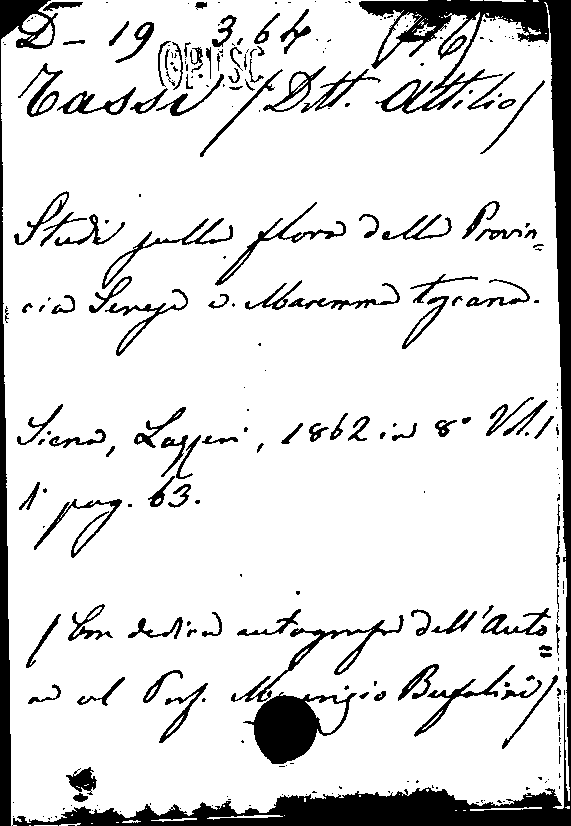 D - 19 3.64 (46)
OPUSC
Tassi (Dott. Attilio)
Studi sulla flora della Provin=
cia Senese e Maremma toscana.
Siena, Lazzeri, 1862 in 8° Vol. 1
di pag. 63.
(Con dedica autografa dell'Auto=
re al Prof. Maurizio Bufalini)